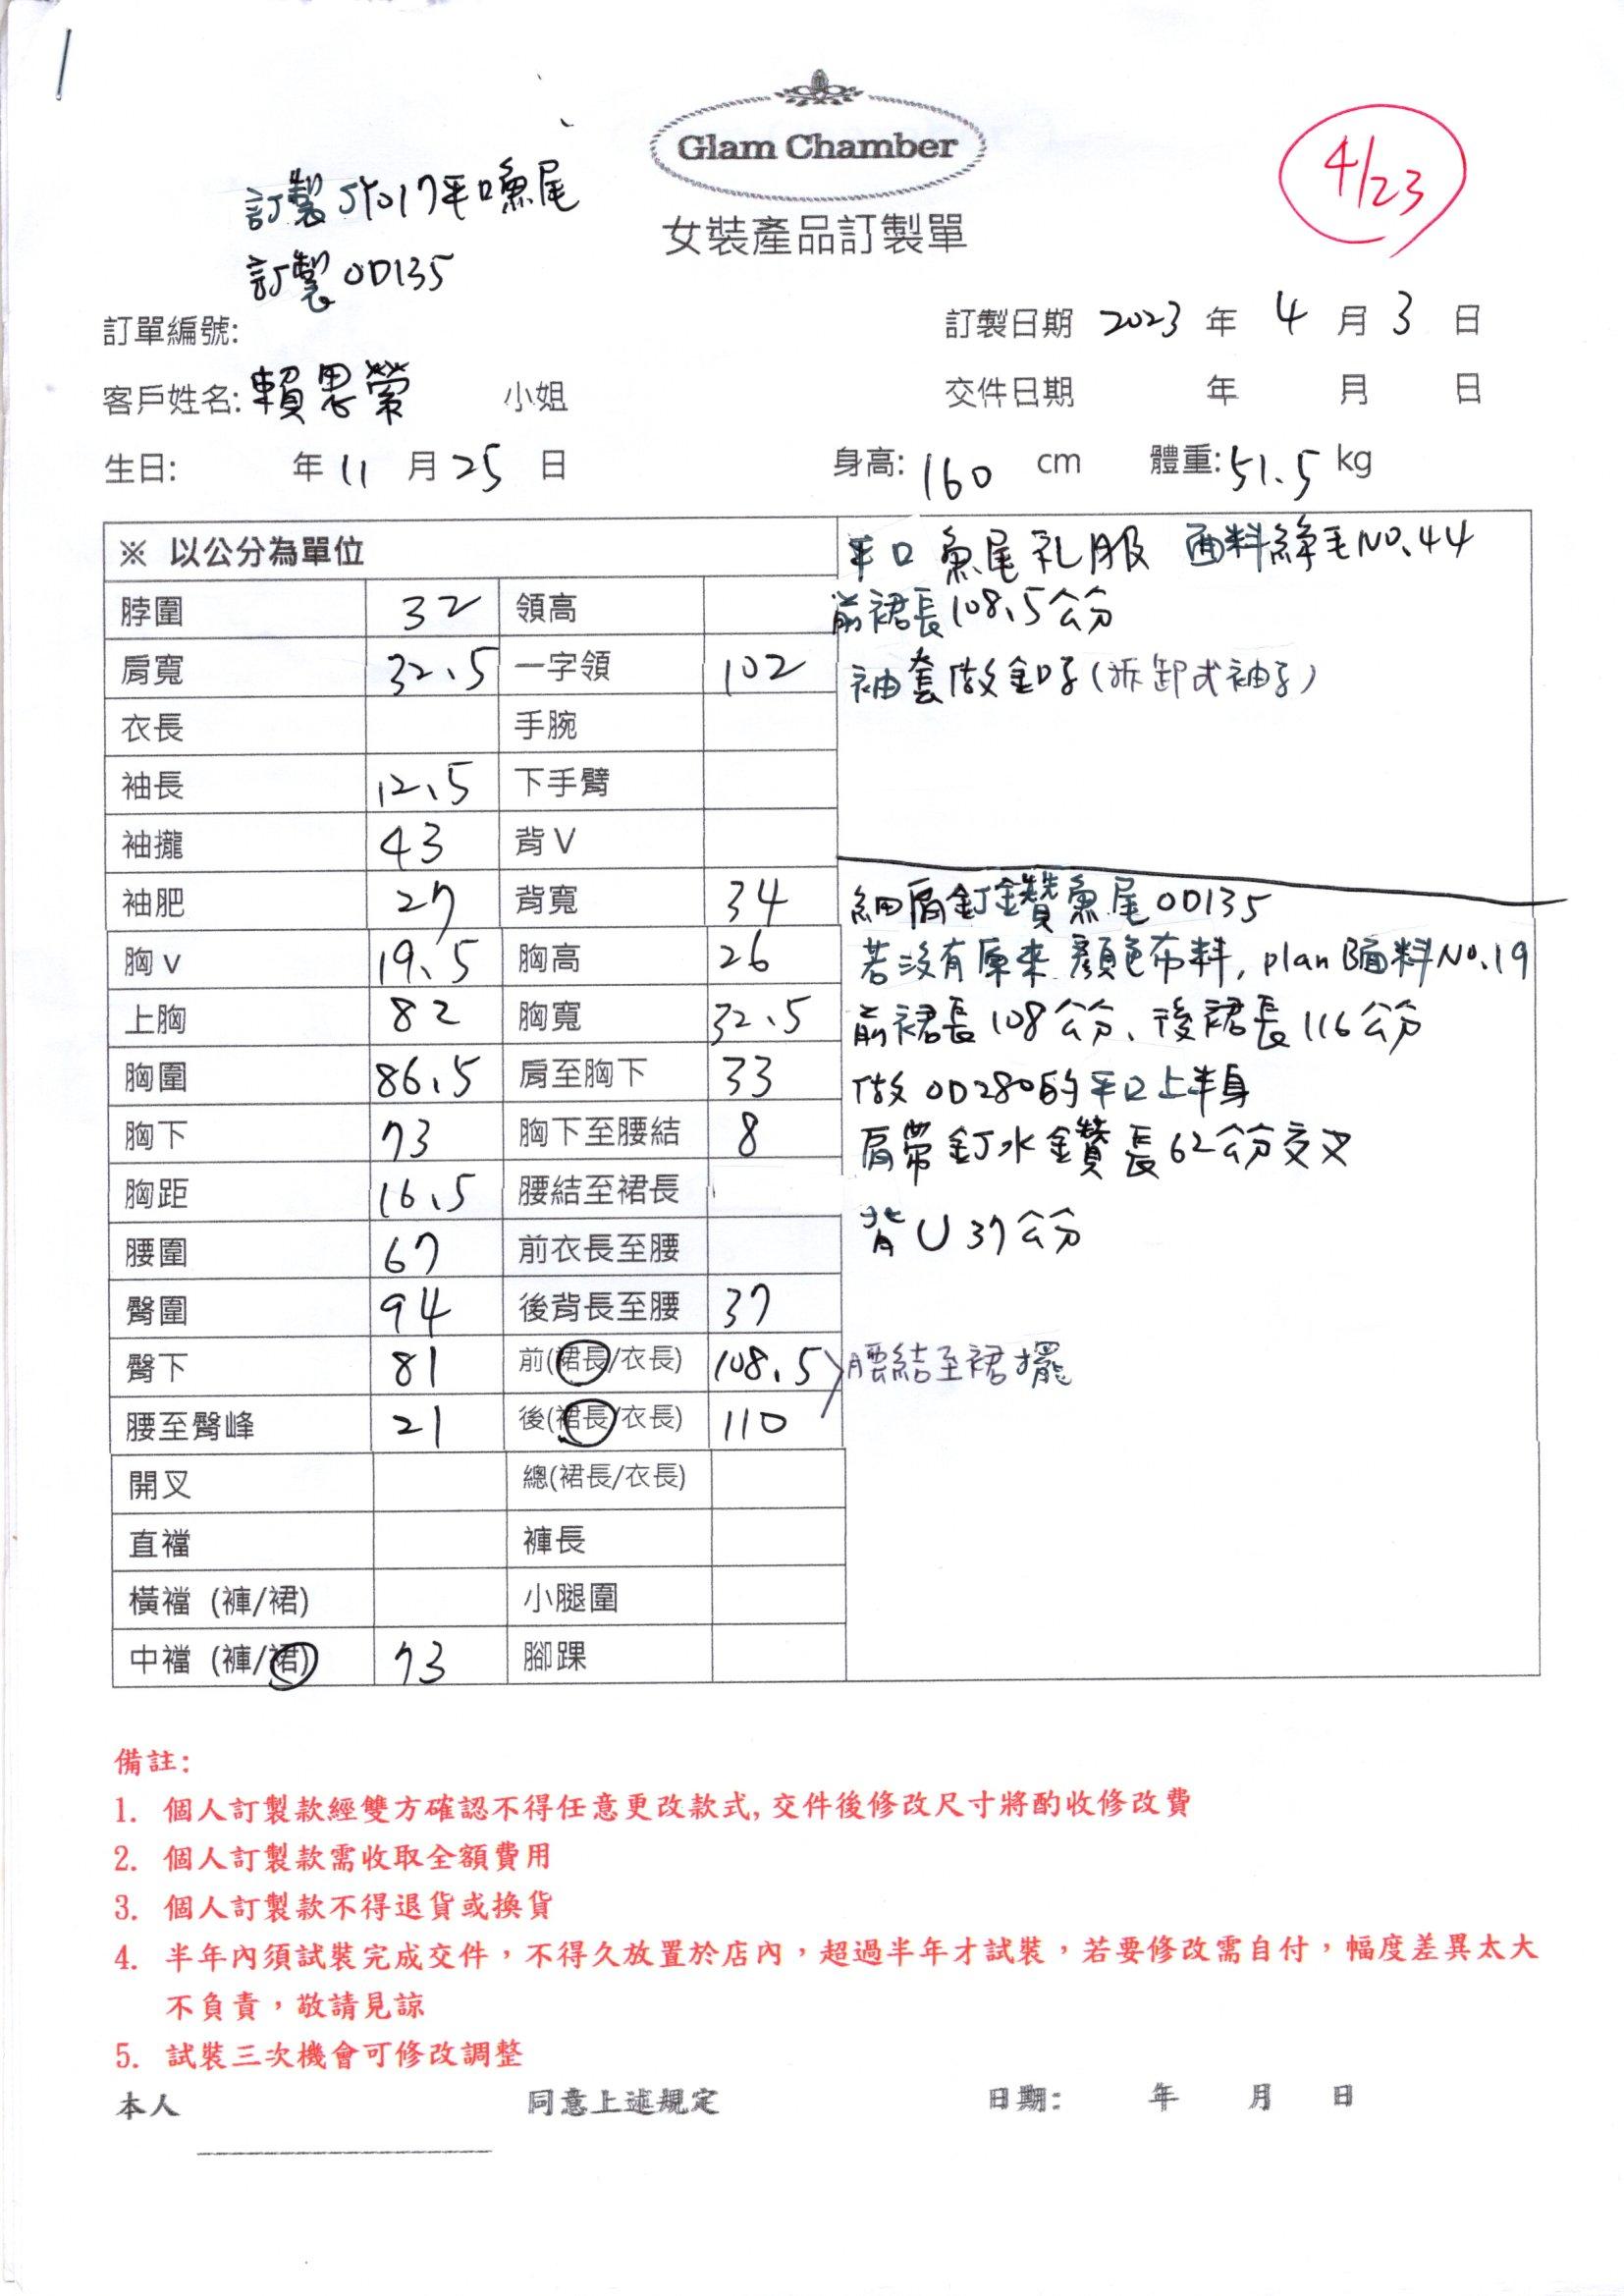 Glam Chamber
4/23
訂製JY017平口魚尾
女裝產品訂製單
訂製OD135
訂單編號:
訂製日期 2023 年 4 月 3 日
客戶姓名: 賴思縈 小姐
交件日期 年 月 日
生日: 年 11 月 25 日
身高: 160 cm 體重: 51.5 kg
※ 以公分為單位
脖圍 32 領高
肩寬 32.5 一字領 102
衣長 手腕
袖長 12.5 下手臂
袖攏 43 背V
袖肥 27 背寬 34
胸v 19.5 胸高 26
上胸 82 胸寬 32.5
胸圍 86.5 肩至胸下 33
胸下 73 胸下至腰結 8
胸距 16.5 腰結至裙長
腰圍 67 前衣長至腰
臀圍 94 後背長至腰 37
臀下 81 前(裙長/衣長) 108.5
腰至臀峰 21 後(裙長/衣長) 110
開叉 總(裙長/衣長)
直襠 褲長
橫襠 (褲/裙) 小腿圍
中襠 (褲/裙) 73 腳踝
平口魚尾礼服 面料緯毛No.44
前裙長108.5公分
袖套做釦子(拆卸式袖子)
細肩釘鑽魚尾OD135
若沒有原來顏色布料, plan B面料No.19
前裙長108公分、後裙長116公分
做OD280的平口上半身
肩帶釘水鑽長62公分交叉
背U 37公分
腰結至裙擺
備註:
1. 個人訂製款經雙方確認不得任意更改款式,交件後修改尺寸將酌收修改費
2. 個人訂製款需收取全額費用
3. 個人訂製款不得退貨或換貨
4. 半年內須試裝完成交件，不得久放置於店內，超過半年才試裝，若要修改需自付，幅度差異太大
不負責，敬請見諒
5. 試裝三次機會可修改調整
本人 同意上述規定 日期: 年 月 日